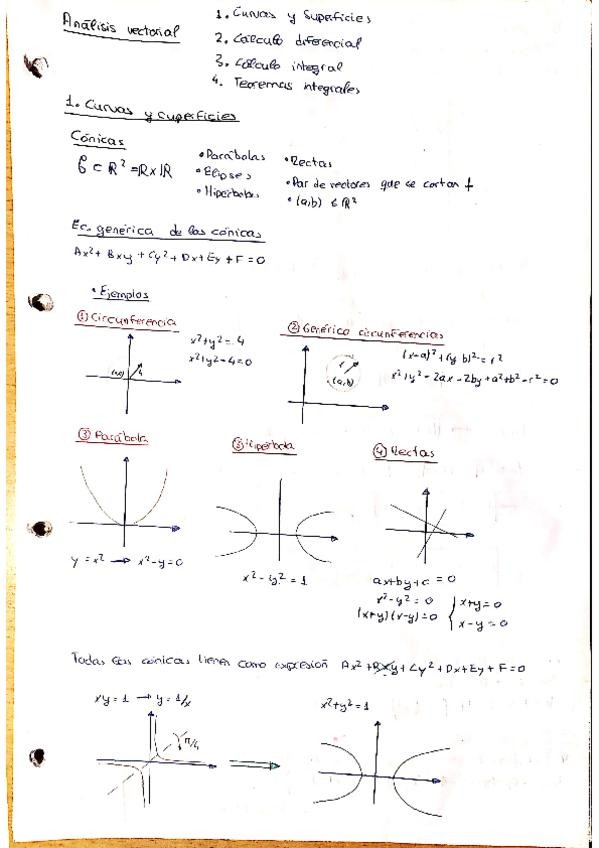 Análisis vectorial
1. Curvas y Superficies
2. Cálculo diferencial
3. Cálculo integral
4. Teoremas integrales
1. Curvas y superficies
Cónicas
⊂ R² = R x R
• Parábolas
• Elipses
• Hipérbolas
• Rectas
• Par de rectores que se cortan
• (a,b) ∈ R²
Ec. genérica de las cónicas
Ax² + Bxy + Cy² + Dx + Ey + F = 0
• Ejemplos
① Circunferencia
x² + y² = 4
x² + y² - 4 = 0
② Genérica circunferencias
(x-a)² + (y-b)² = r²
x² + y² - 2ax - 2by + a² + b² - r² = 0
r
(a,b)
③ Parábola
③ Hipérbola
④ Rectas
y = x² → x² - y = 0
x² - y² = 1
ax + by + c = 0
x² - y² = 0
(x+y)(x-y) = 0 { x + y = 0
x - y = 0
Todas las cónicas tienen como expresión Ax² + Bxy + Cy² + Dx + Ey + F = 0
xy = 1 → y = 1/x
π/4
x² + y² = 1